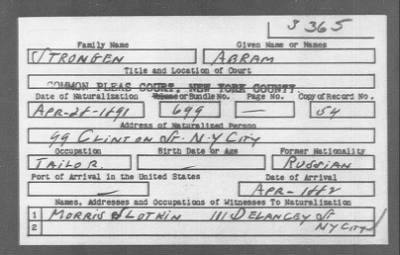 S 365
Family Name Given Name or Names
STRONGEN ABRAM
Title and Location of Court
COMMON PLEAS COURT, NEW YORK COUNTY.
Date of Naturalization Volume or Bundle No. Page No. Copy of Record No.
APR-28-1891 699 — 54
Address of Naturalized Person
99 CLINTON ST. N.Y CITY
Occupation Birth Date or Age Former Nationality
TAILOR — RUSSIAN
Port of Arrival in the United States Date of Arrival
— APR-1882
Names, Addresses and Occupations of Witnesses To Naturalization
1 MORRIS 111 DELANCEY ST
2 NY CITY